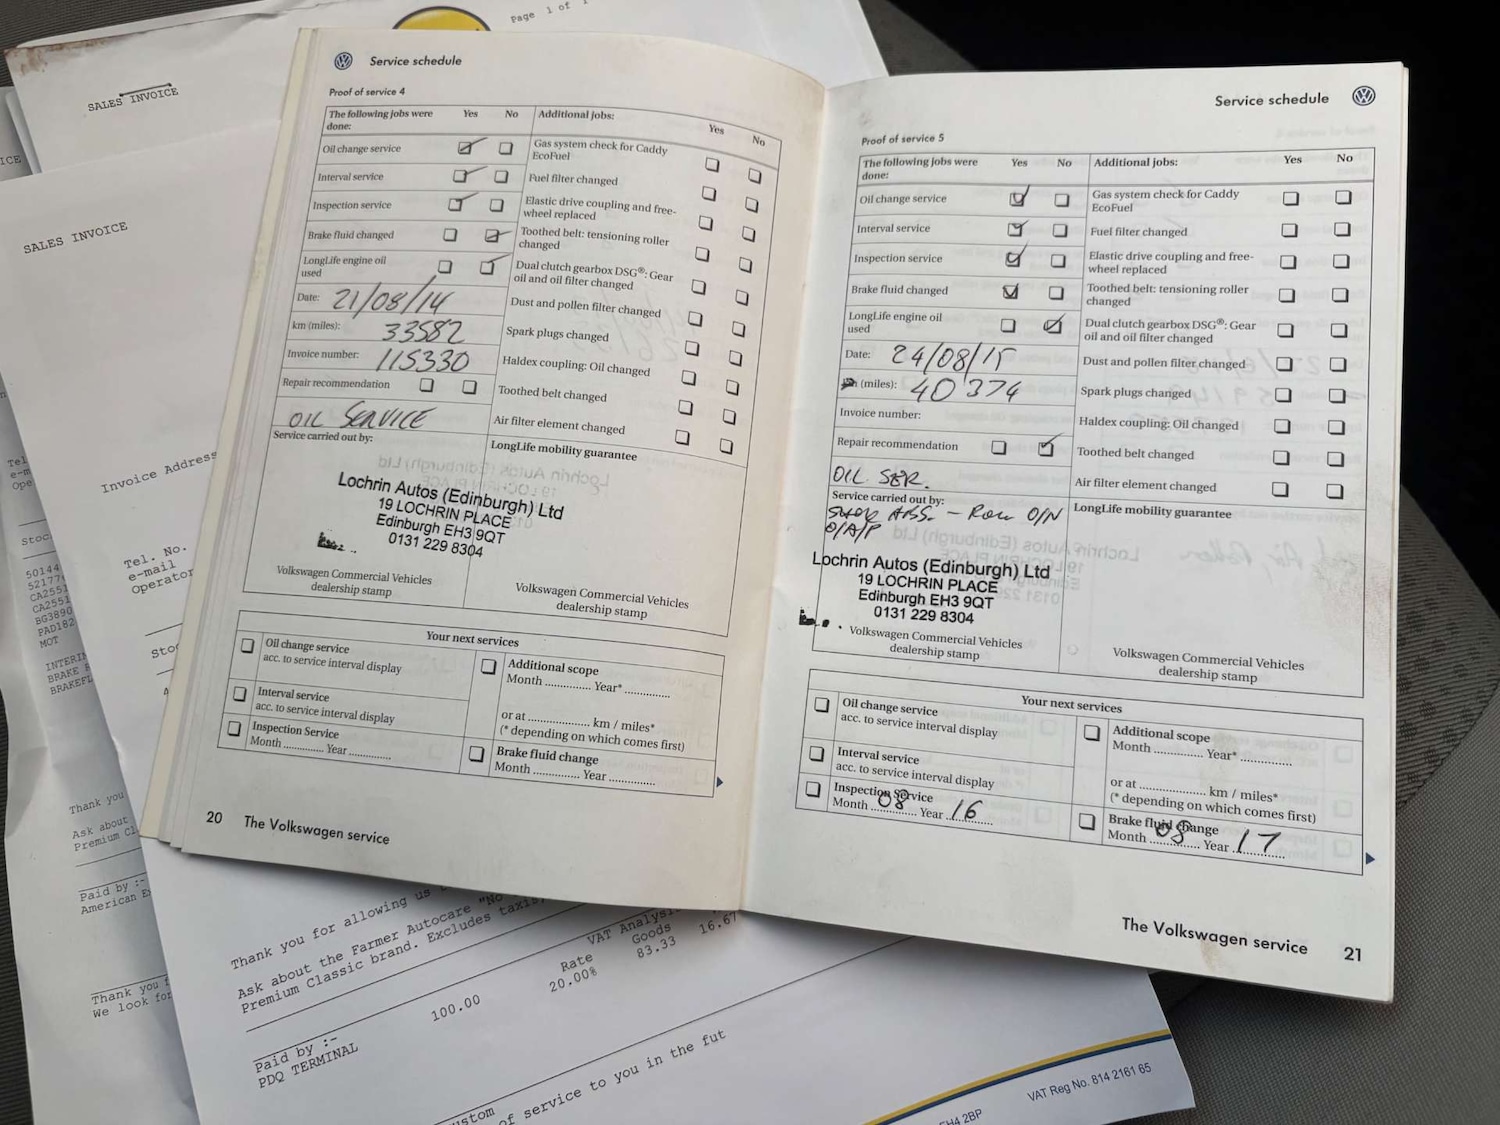 Page 1 of 1
SALES INVOICE
ICE
SALES INVOICE
Invoice Address
Tel. No.
e-mail
Operator
Tel
e-m
Ope
Stoc
50144
52177
CA255
CA2551
CA2551
BG3890
PAD182
MOT
INTERI
BRAKE
BRAKEFL
Stoc
Thank you
Ask about
Premium Cla
Paid by :-
American Ex
Thank you f
We look for
Service schedule
Proof of service 4
The following jobs were done: Yes No
Additional jobs: Yes No
Oil change service
Interval service
Inspection service
Brake fluid changed
LongLife engine oil
used
Date: 21/08/14
km (miles): 33582
Invoice number: 115330
Repair recommendation
OIL SERVICE
Service carried out by:
Gas system check for Caddy
EcoFuel
Fuel filter changed
Elastic drive coupling and free-
wheel replaced
Toothed belt: tensioning roller
changed
Dual clutch gearbox DSG®: Gear
oil and oil filter changed
Dust and pollen filter changed
Spark plugs changed
Haldex coupling: Oil changed
Toothed belt changed
Air filter element changed
LongLife mobility guarantee
Lochrin Autos (Edinburgh) Ltd
19 LOCHRIN PLACE
Edinburgh EH3 9QT
0131 229 8304
Volkswagen Commercial Vehicles
dealership stamp
Volkswagen Commercial Vehicles
dealership stamp
Your next services
Oil change service
acc. to service interval display
Interval service
acc. to service interval display
Inspection Service
Month ............ Year ............
Additional scope
Month ............ Year* ............
or at .................. km / miles*
(* depending on which comes first)
Brake fluid change
Month ............ Year ............
20 The Volkswagen service
Service schedule
Proof of service 5
The following jobs were done: Yes No
Additional jobs: Yes No
Oil change service
Interval service
Inspection service
Brake fluid changed
LongLife engine oil
used
Date: 24/08/15
(miles): 40374
Invoice number:
Repair recommendation
OIL SER.
Service carried out by:
O/N
O/A/P
Gas system check for Caddy
EcoFuel
Fuel filter changed
Elastic drive coupling and free-
wheel replaced
Toothed belt: tensioning roller
changed
Dual clutch gearbox DSG®: Gear
oil and oil filter changed
Dust and pollen filter changed
Spark plugs changed
Haldex coupling: Oil changed
Toothed belt changed
Air filter element changed
LongLife mobility guarantee
Lochrin Autos (Edinburgh) Ltd
19 LOCHRIN PLACE
Edinburgh EH3 9QT
0131 229 8304
Volkswagen Commercial Vehicles
dealership stamp
Volkswagen Commercial Vehicles
dealership stamp
Your next services
Oil change service
acc. to service interval display
Interval service
acc. to service interval display
Inspection Service
Month 08 Year 16
Additional scope
Month ............ Year* ............
or at .................. km / miles*
(* depending on which comes first)
Brake fluid change
Month 08 Year 17
The Volkswagen service 21
Thank you for allowing us
Ask about the Farmer Autocare "No
Premium Classic brand. Excludes taxis,
VAT Analysis
Rate Goods
20.00% 83.33 16.67
100.00
Paid by :-
PDQ TERMINAL
ustom
of service to you in the fut
EH4 2BP
VAT Reg No. 814 2161 65